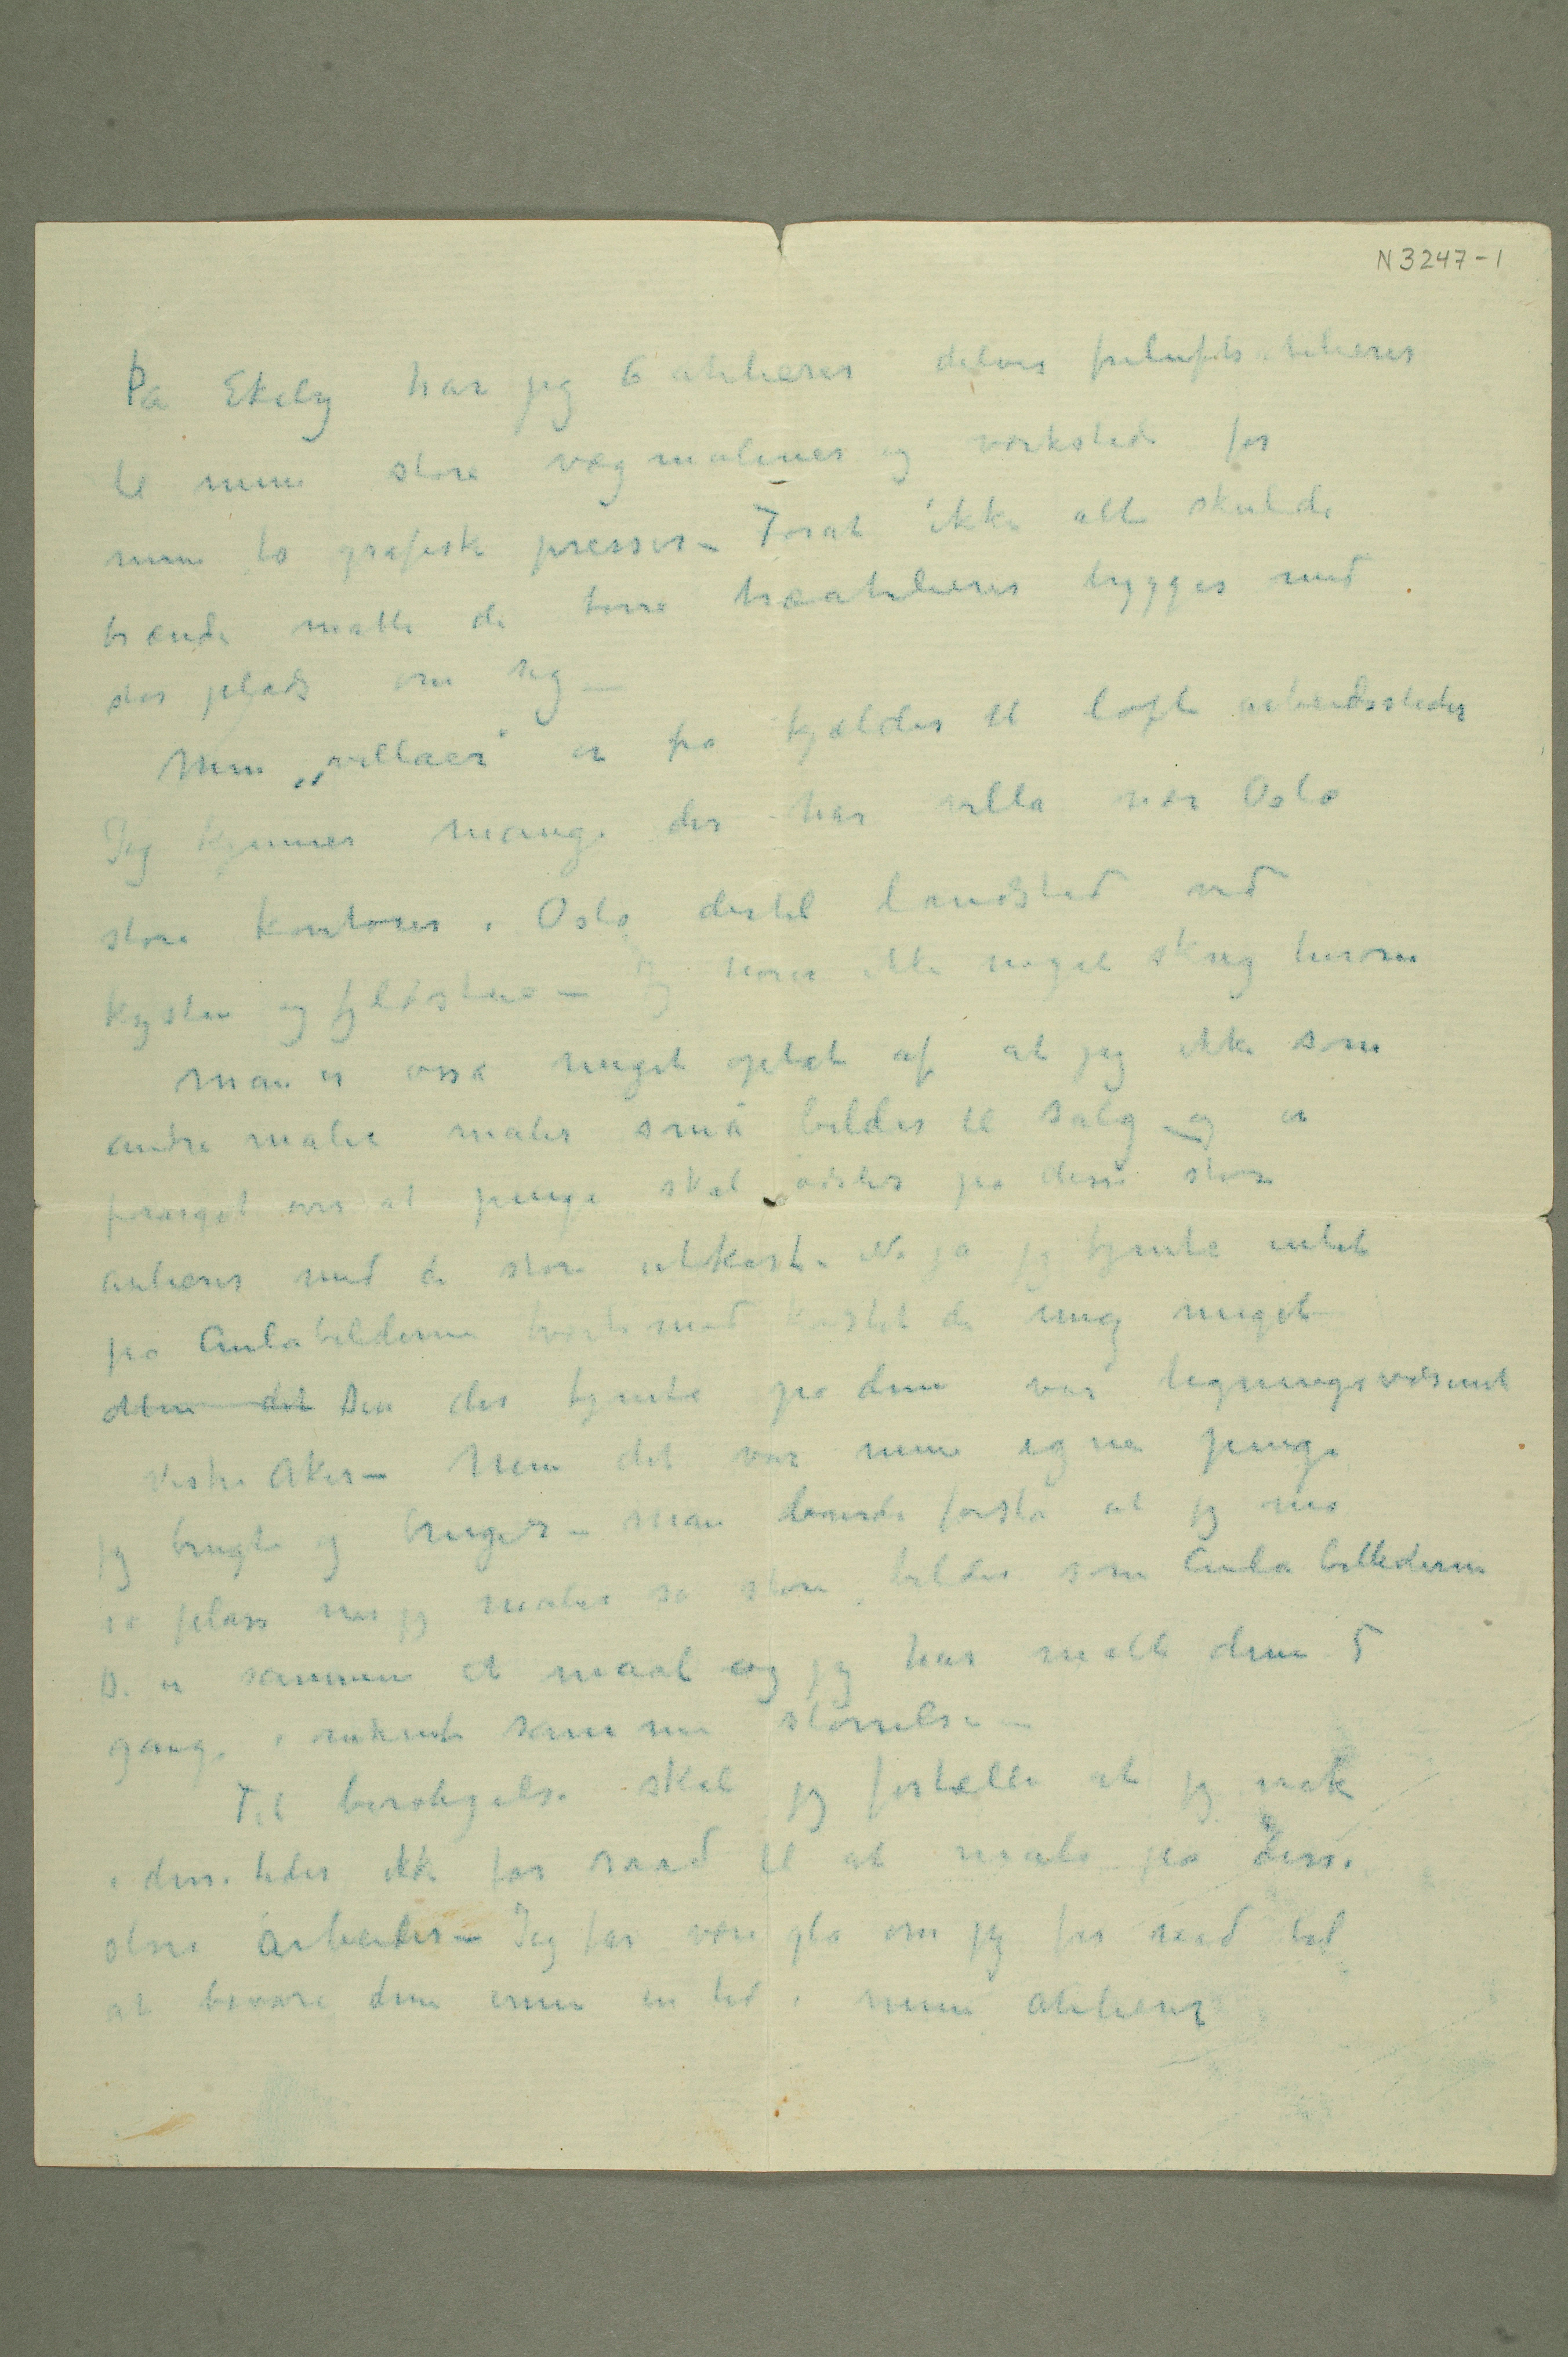 N 3247-1
På Ekely har jeg 6 atelierer delvis frilufts atelierer
til mine store vægmalerier og værksted for
mine to grafiske presser – Forat ikke alt skulde
brænde måtte de tørre træatelierer bygges med
stor plads om sig –
Mine „villaer" er fra kjælder til loft arbeidssteder
Jeg kjenner mange der har villa nær Oslo
store kontorer i Oslo dertil landsted ved
kysten og fjeldstue – Jeg hører ikke noget skrig herom
Man er også meget optat af at jeg ikke som
andre malere maler små billeder til salg og er
forarget over at penge skal ødsles på disse store
atelierer med de store utkast. Nå ja jeg tjente intet
på Aulabillederne tvertimod kostet de mig meget
Men det Den der tjente på dem var ligningsvæsenet
Vestre Aker – Men det var mine egne penge
jeg brugte og bruger – Man burde forstå at jeg må
ha plass når jeg maler så store billeder som Aula billederne
De er sammen et maal og jeg har malt dem 5
gange i omtrent samme størrelse –
Til beroligelse skal jeg fortælle at jeg nok
i disse tider ikke får raad til at male på disse
store arbeider – Jeg får være glad om jeg får raad til
at bevare dem ennu en tid i mine atelierer